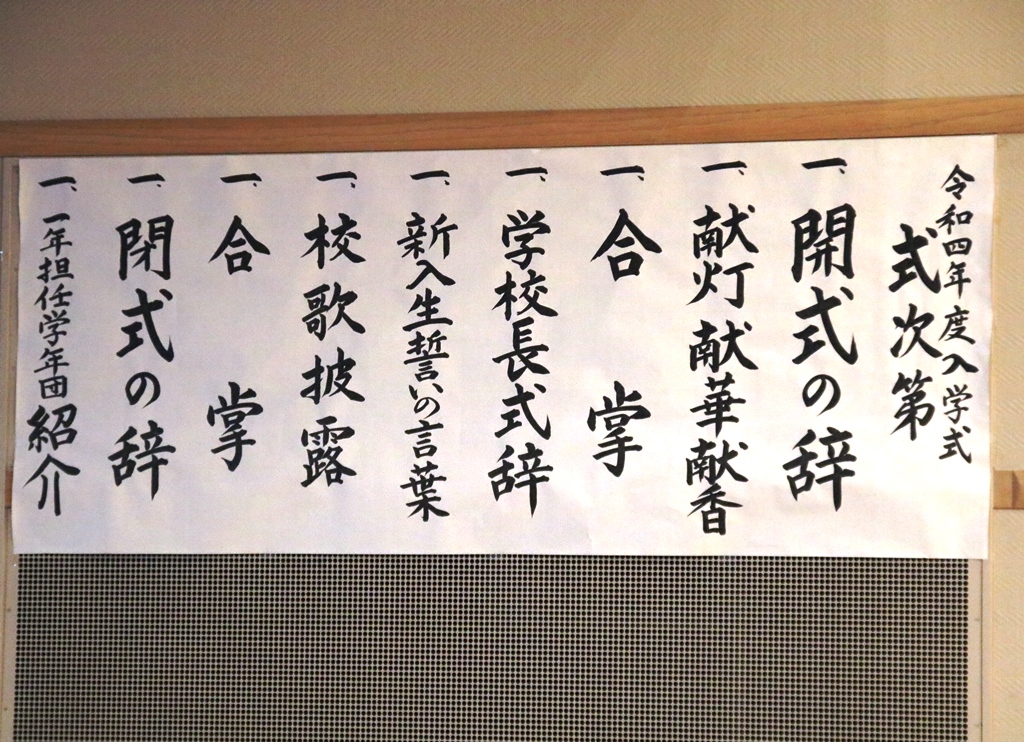 令和四年度入学式
式次第
一、開式の辞
一、献灯献華献香
一、合掌
一、学校長式辞
一、新入生誓いの言葉
一、校歌披露
一、合掌
一、閉式の辞
一、一年担任学年団紹介